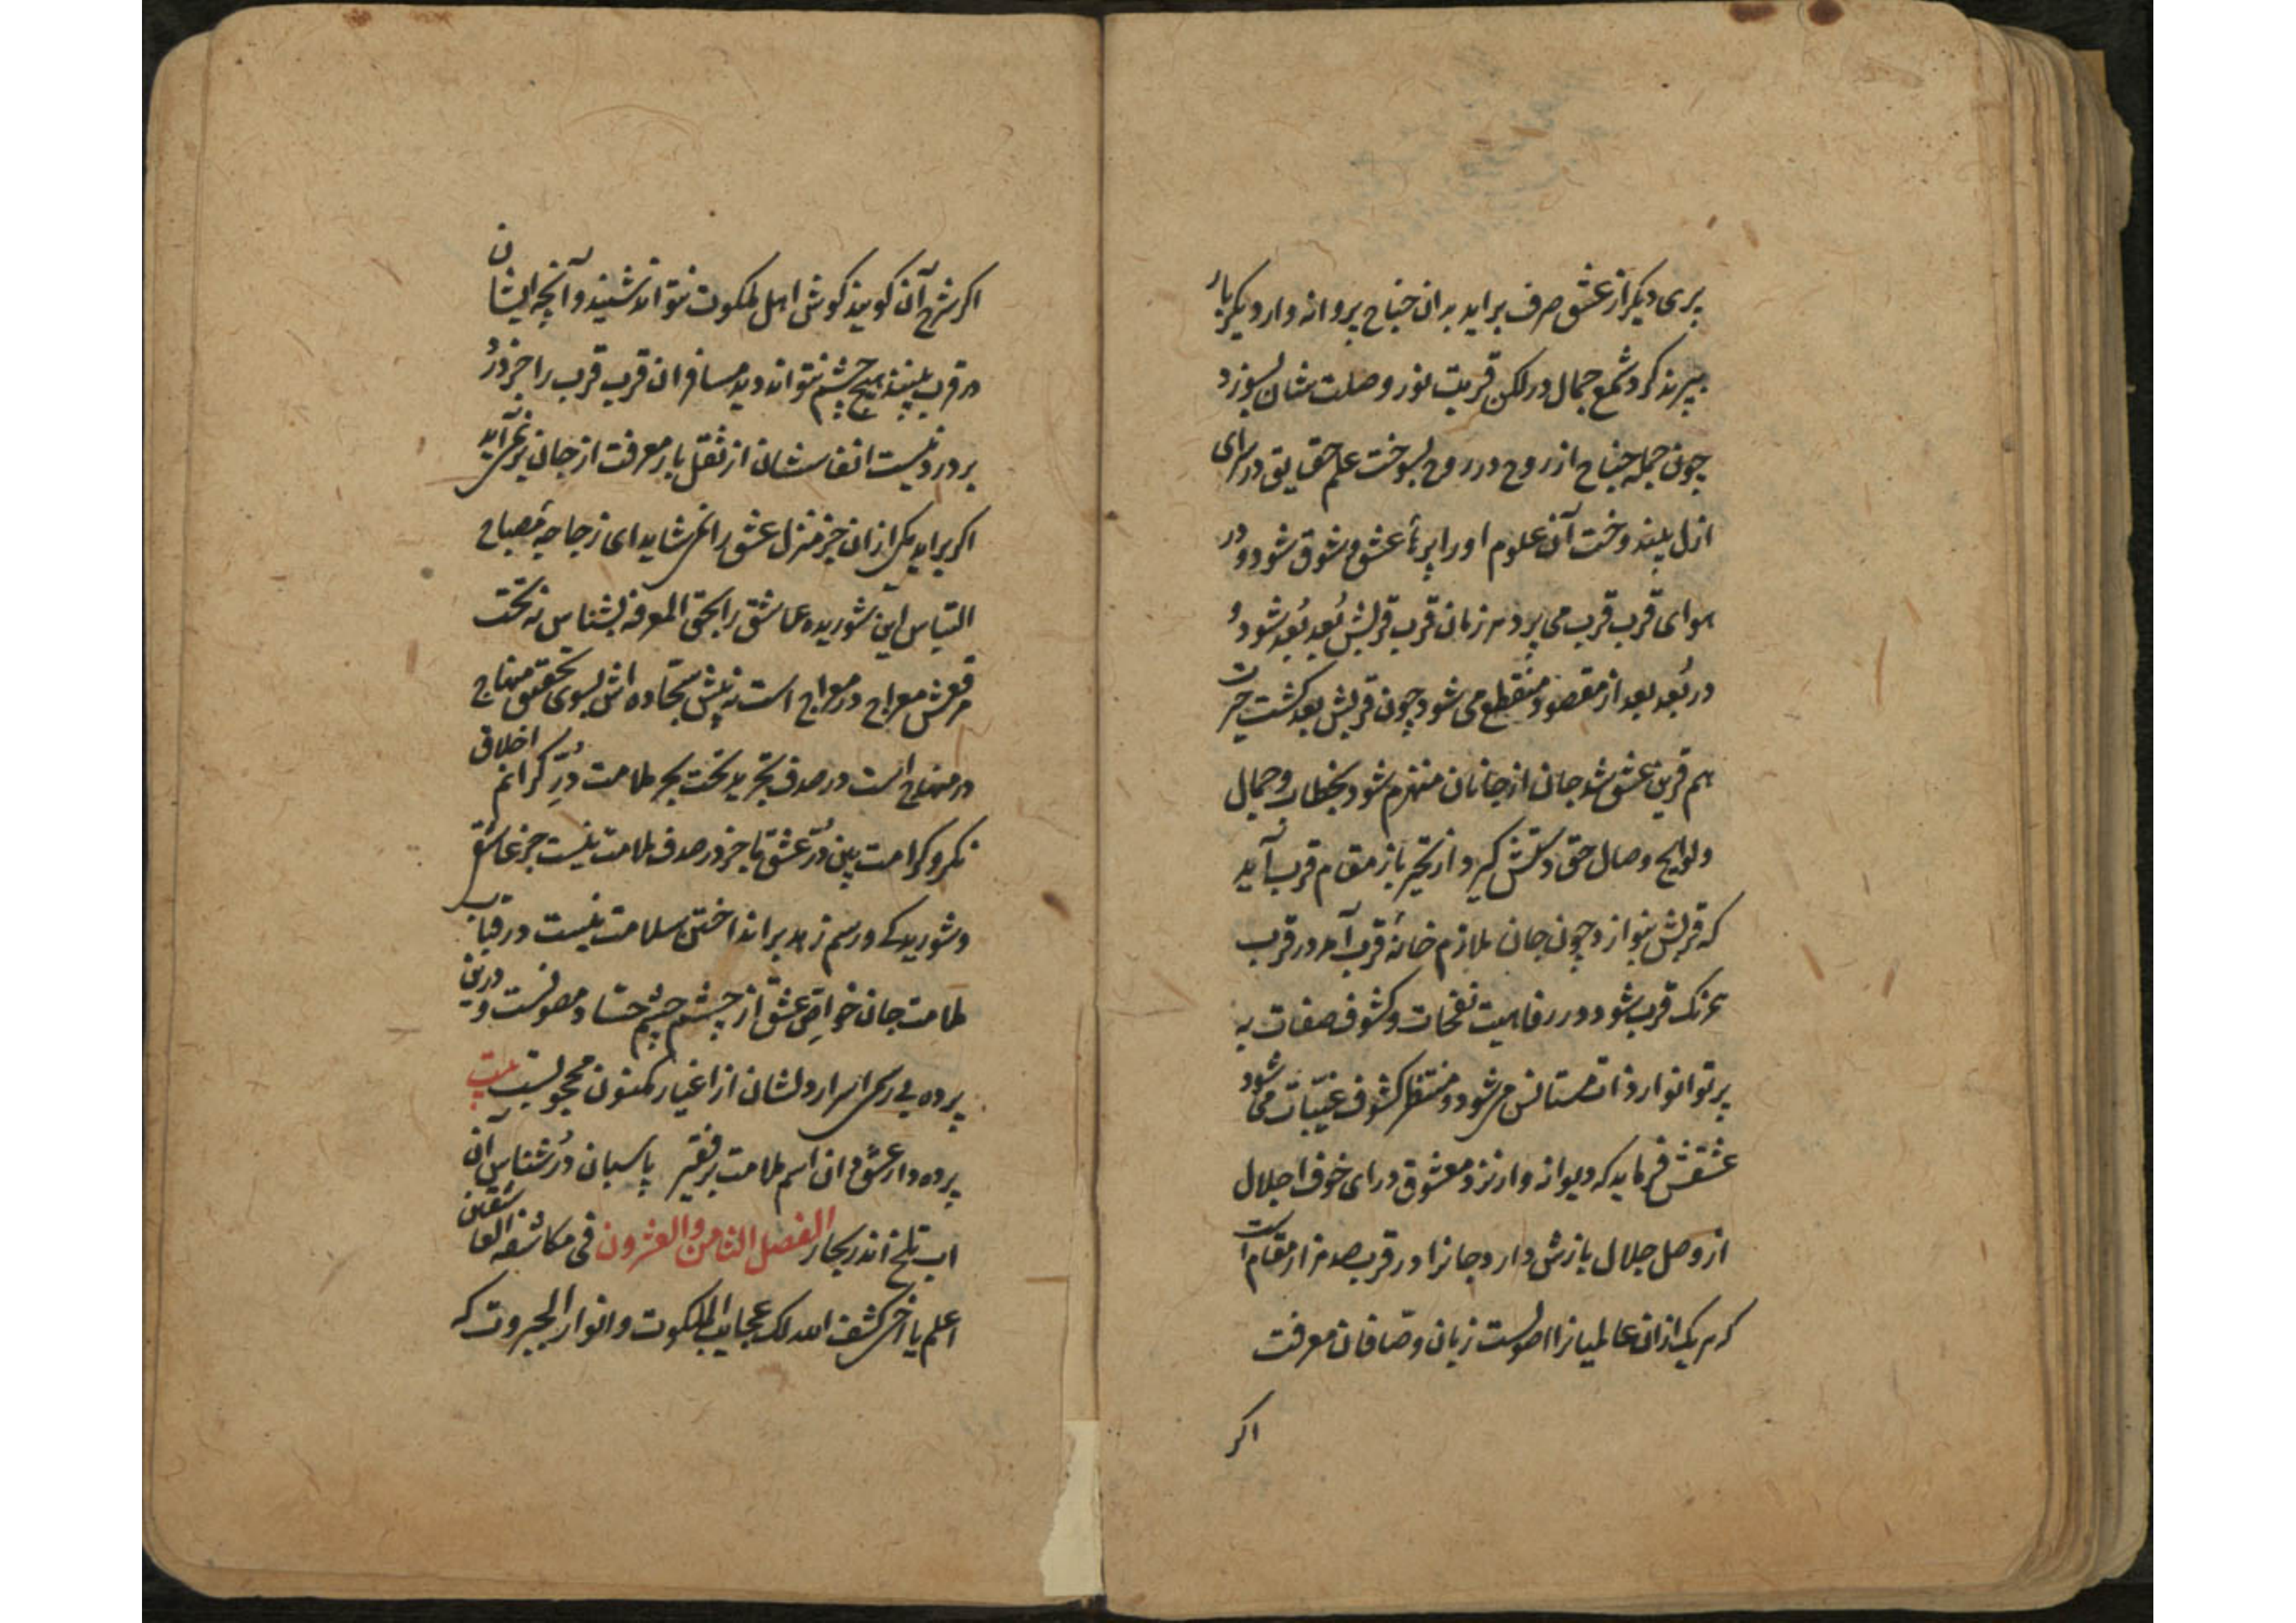 پری دیکر از عشق صرف براید بدان جناح پروانه وار دیکر بار
بپرند کرد شمع جمال در لکن قربت نور وصلت شان بسوزد
چون جمله جناح از روح در روح بسوخت علم حقایق در سرای
ازل بیند وخت آن علوم او را پر عشق و شوق شود و در
هوای قرب قرب می پرد هر زمان قرب قربش بُعد بُعد شود و
در بُعد بعد از مقصود منقطع می شود چون قربش بعد کشت حیرت
هم قرین عشق شد جان از جانان منهزم شود بخطاب و جمال
و لوایح وصال حق دستش کیرد از تحیر باز مقام قرب آید
که قربش بنوازد چون جان ملازم خانهٔ قرب آمد در قرب
همرنک قرب شود و در رفاهیت نفحات و کشوف صفات به
پرتو انوار ذات مستانس می شود و منتظر کشوف غیبات می شود
عشقش فرماید که دیوانه وار نزد معشوق در ای خوف اجلال
از وصل جلال بازش دارد جانرا در قرب صد هزار مقام است
که هر یک از ان عالمیانرا اصولست زبان وصافان معرفت
اکر
اکر شرح آن کویند کوش اهل ملکوت نتواند شنیدن و آنچه ایشان
در قرب بینند هیچ چشم نتواند دید مسافران قرب قرب را جز درد
بر درد نیست انفاسشان از ثقل بار معرفت از جان بر نمی آید
اکر براید یکی از ان جز منزل عشق را نمی شاید ای زجاجهٔ مصباح
التباس این شوریده عاشق را بحق المعرفه بشناس نه تحت
مرقعش معراج در معراج است نه پیش سجاده اش بسوی تحقیق منهاج
در منهاج است در صدف تجرید تحت بحر ملامت دُرّ کرانم اخلاق
نکر و کرامت بین دُرّ عشق ما جز در صدف ملامت نیست جز عاشقی
و شوریدکی و رسم زهد بر انداختن سلامت نیست در قباب
ملامت جان خواص عشق از چشم چشم حساد مصونست و درین
پرده بی رسمی اسرار دلشان از اغیار مکنون محجوبست بیت
پرده دار عشق دان اسم ملامت بر فقیر پاسبان دُر شناس آن
اب تلخ اندر بحار الفصل الثامن والعشرون فی مکاشفه العاشقان
اعلم یا اخی کشف الله لک عجایب الملکوت و انوار الجبروت که